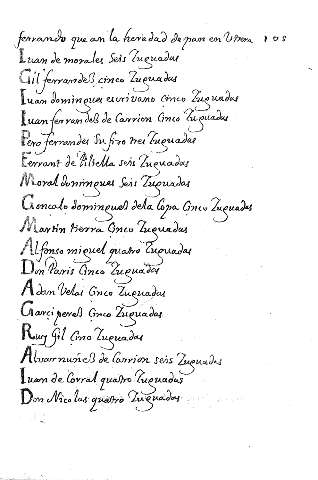 ferrando que an la heredad de pan en Utrera 105
Iuan de morales seis Zuguadas
Gil ferrandeß cinco Zuguadas
Iuan domingues escrivano Cinco Zuguadas
Iuan ferrandeß de Carrion Cinco Zuguadas
Pero ferrandes su fixo tres Zuguadas
Ferrant de Villella seis Zuguadas
Moral domingues seis Zuguadas
Goncalo domingueß dela Copa Cinco Zuguadas
Martin tierra Cinco Zuguadas
Alfonso miguel quatro Zuguadas
Don Paris Cinco Zuguadas
Adan Velas Cinco Zuguadas
Garçi pereß Cinco Zuguadas
Ruy Gil Cinco Zuguadas
Aluar nuñeß de Carrion seis Zuguadas
Iuan de Corral quatro Zuguadas
Don Nicolas quatro Zuguadas